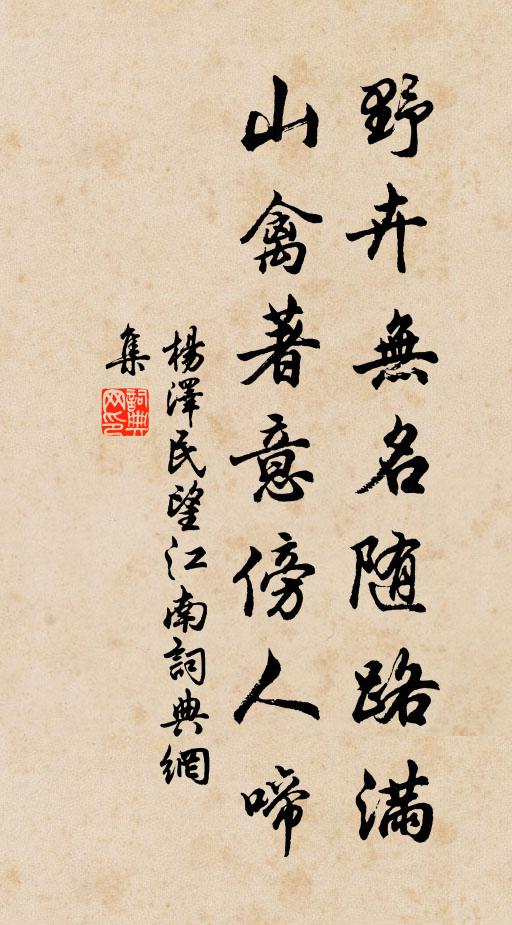 野卉無名隨路滿
山禽著意傍人啼
楊澤民望江南詞典網
集
詞典
网印